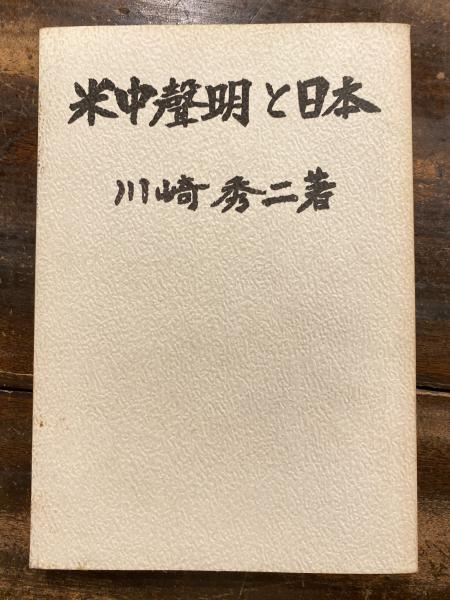 米中聲明と日本
川崎秀二著